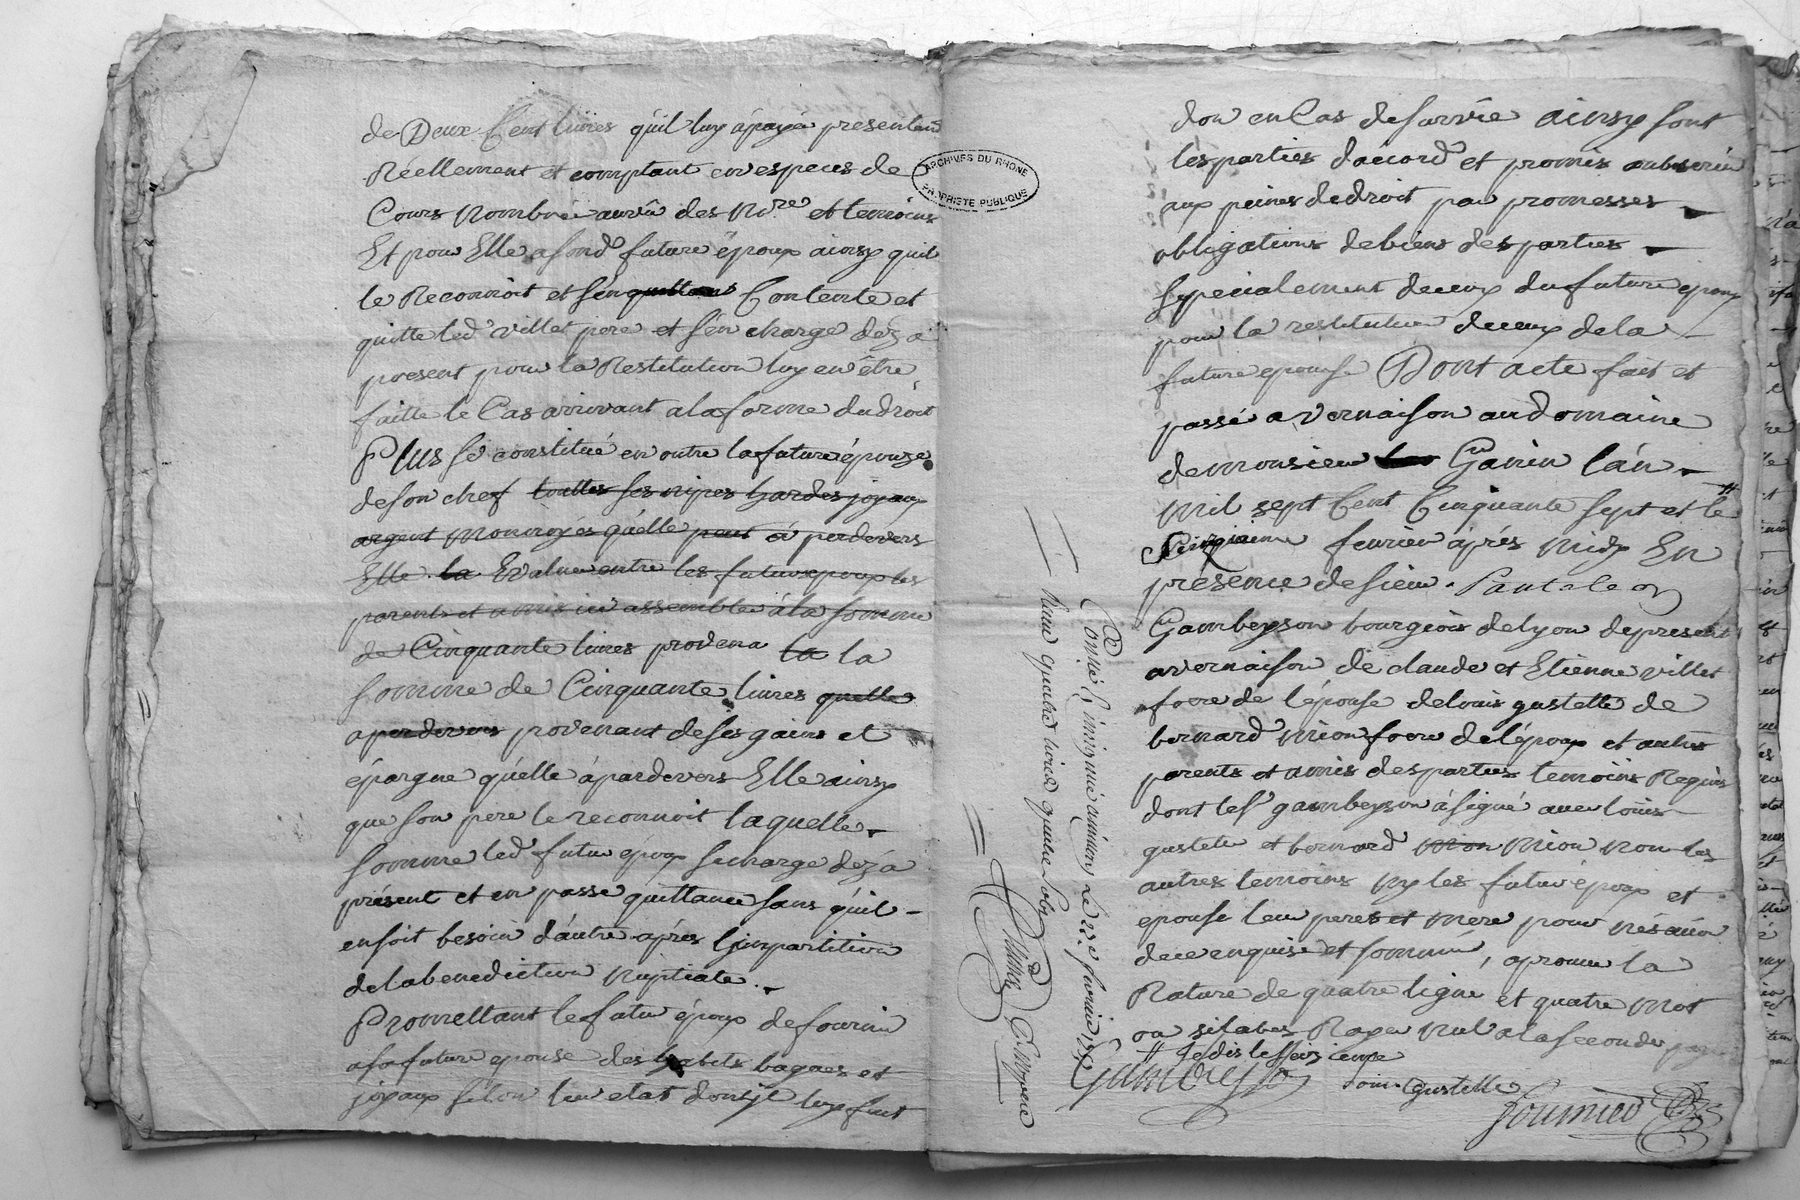 de Deux Cent livres qu'il luy à payé presentem
Réellement et comptant en especes de
Cours Nombré au vû des Nore et temoins
Et pour Elle a sond future époux ainsy quil
le Reconnoit et s'en quittans Contente et
quitte led villet pere et s'en charge dez a
present pour la Restitution luy en être
faitte le Cas arrivant a la forme du droit
Plus se constitué en outre la future épouze
de son chef touttes ses nipes hardes joyaux
argent monnoyés qu'elle peut à perdevers
Elle la Evaluee entre les futurs epoux les
parents et amis icy assemblée à la somme
de Cinquante livres provena la la
somme de Cinquante livres quelle
a perdevers provenant de ses gains et
épargne qu'elle à pardevers Elle ainsy
que son pere le reconnoit laquelle
somme led futur époux se charge dez a
présent et en passe quittance sans qu'il
en soit besoin d'autre après l'impartition
de la benediction Nuptiale.
Promettant le futur époux de fournir
a sa future epouse des habits bagues et
joyaux selon leur etat dont il luy fait
ARCHIVES DU RHONE
PROPRIETE PUBLIQUE
don en Cas de survie ainsy sont
les parties d'accord et promis observer
aux peines de droit par promesses
obligations de biens des parties
specialement de ceux du future epoux
pour la restitution de ceux de la
future epouse Dont acte fait et
passé a vernaison au domaine
de monsieur Ganin l'an
mil sept Cent Cinquante sept et le
Cinquieme fevrier après midy En
presence de sieur Pantaleon
Gambeyson bourgeois de lyon de present
a vernaison de claude et Etienne villet
frere de l'épouse de louis gustelle de
bernard Mion frere de l'époux et autres
parents et amis des parties temoins Requis
dont les gambeyson à signé avec louis
gustele et bernard mion Mion non les
autres temoins ny les futur époux et
epouse leur peres et mere pour ne sçavoir
de ce enquise et sommé, aprouve la
Rature de quatre ligne et quatre mot
ou silabes Rayer Nul a la seconde page
je dis le septieme
Gambeyson
Louis Gustelle
fournier
Controlé &amp; insinué a Mions Le 22e fevrier 1757